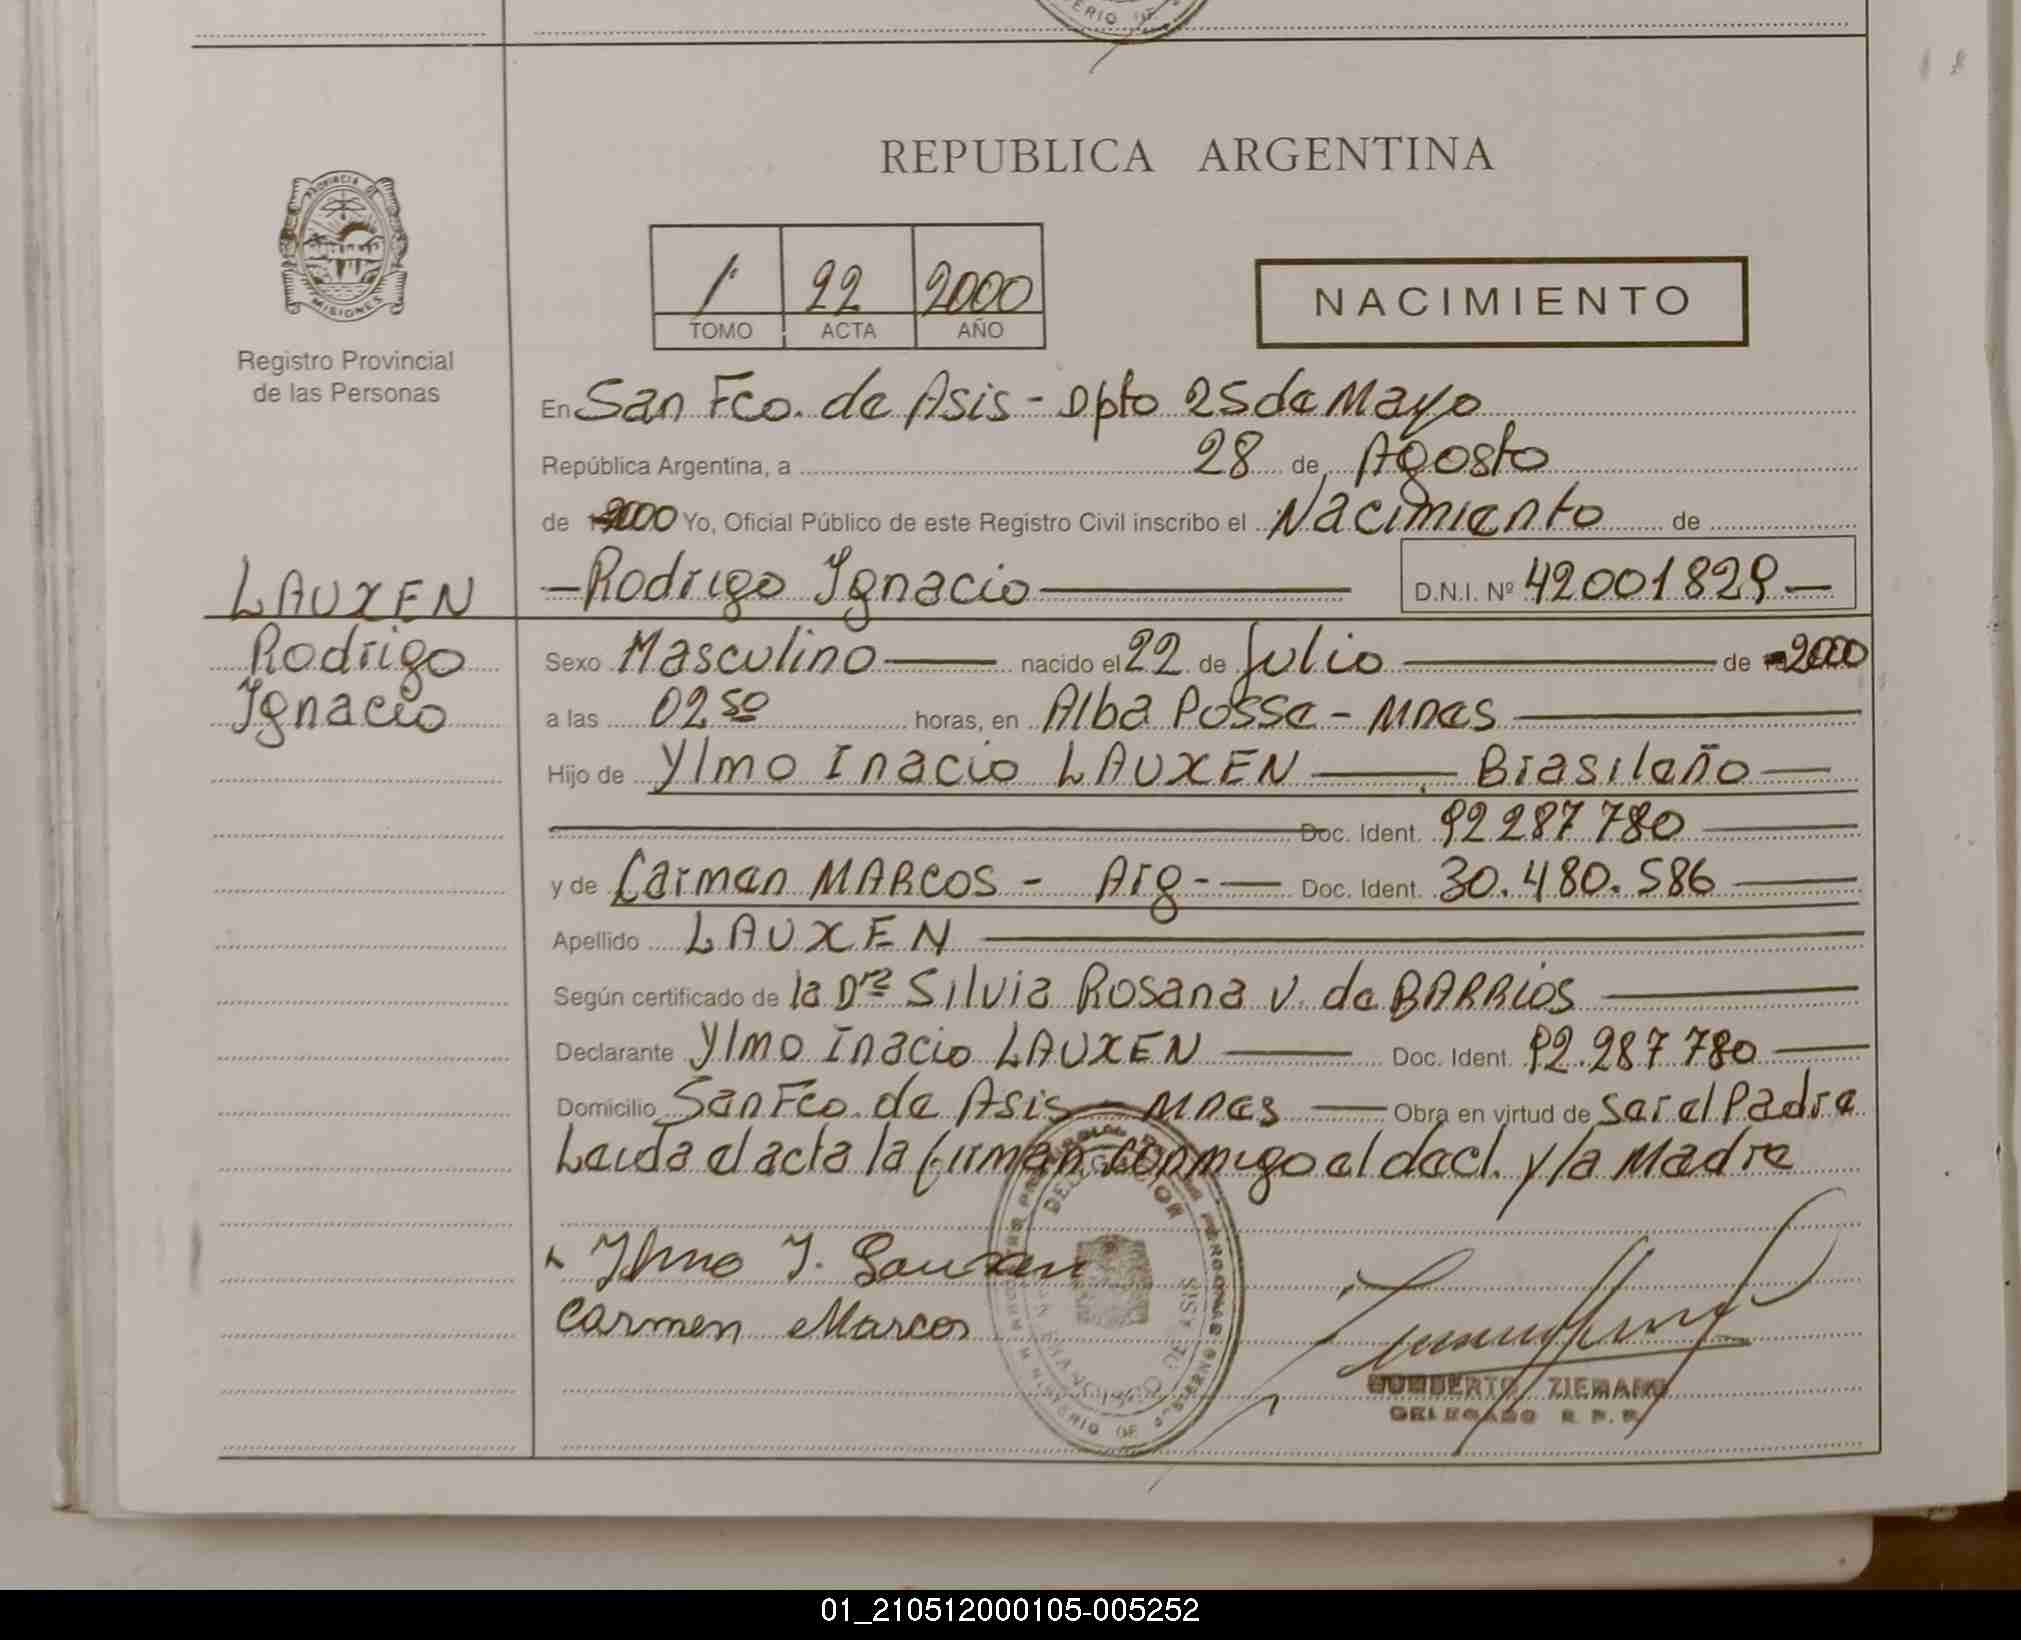 REPUBLICA ARGENTINA
PROVINCIA DE
MISIONES
Registro Provincial
de las Personas
1 22 2000
TOMO ACTA AÑO
NACIMIENTO
En San Fco. de Asis - Dpto 25 de Mayo
República Argentina, a 28 de Agosto
de 2000 Yo, Oficial Público de este Registro Civil inscribo el Nacimiento de
LAUXEN
Rodrigo
Ignacio
— Rodrigo Ignacio — D.N.I. Nº 42001829 —
Sexo Masculino — nacido el 22 de Julio — de 2000
a las 02 50 horas, en Alba Posse - Mnes —
Hijo de Ylmo Inacio LAUXEN — Brasileño —
Doc. Ident. 92 287 780 —
y de Carmen MARCOS - Arg - — Doc. Ident. 30.480.586 —
Apellido LAUXEN —
Según certificado de la Dra Silvia Rosana V. de BARRIOS —
Declarante Ylmo Inacio LAUXEN — Doc. Ident. 92.287 780 —
Domicilio San Fco. de Asis - Mnes — Obra en virtud de ser el Padre
Leida el acta la firman conmigo el decl. y/a Madre
Ylmo I. Lauxen
Carmen Marcos
DELEGACION
SAN FRANCISCO DE ASIS
HUMBERTO ZIEMANN
DELEGADO R. P. P.
01_210512000105-005252